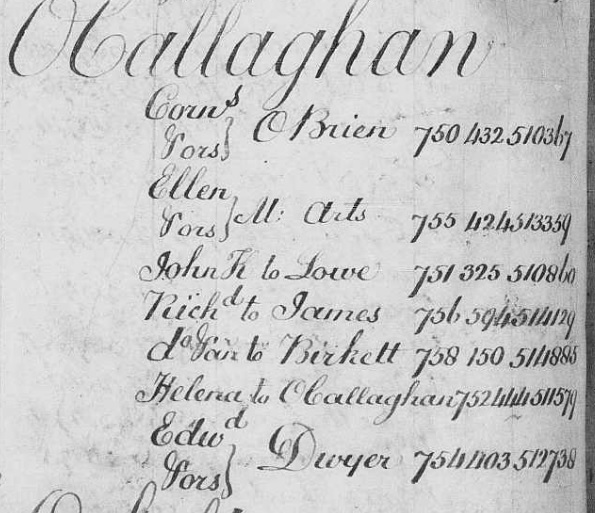 OCallaghan
Corns
Vors} OBrien 750 432 510367
Ellen
Vors} Mc Arts 755 424 513359
John K to Lowe 751 325 510860
Richd to James 756 594 514129
do to Birkett 758 150 514885
Helena to OCallaghan 752 444 511579
Edwd
Vors} Dwyer 754 403 512738